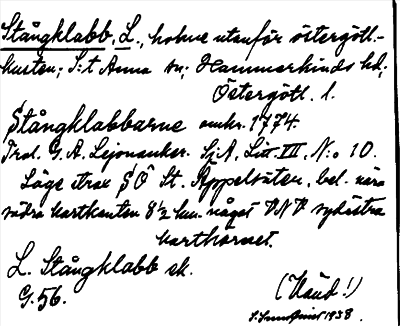 Stångklabb, L., holme utanför östergötl.-
kusten; S:t Anna sn; Hammerkinds hd;
Östergötl. l.
Stångklabbarne omkr. 1774.
Trol. G. A. Lejonancker. Sj A, Litt. III, N:o 10.
Läge strax SO St. Äppelsäten, bel. nära
södra kartkanten 8 1/2 km. något VNV sydöstra
karthörnet.
L. Stångklabb sk.
G. 56.
(Häud!)
1938.